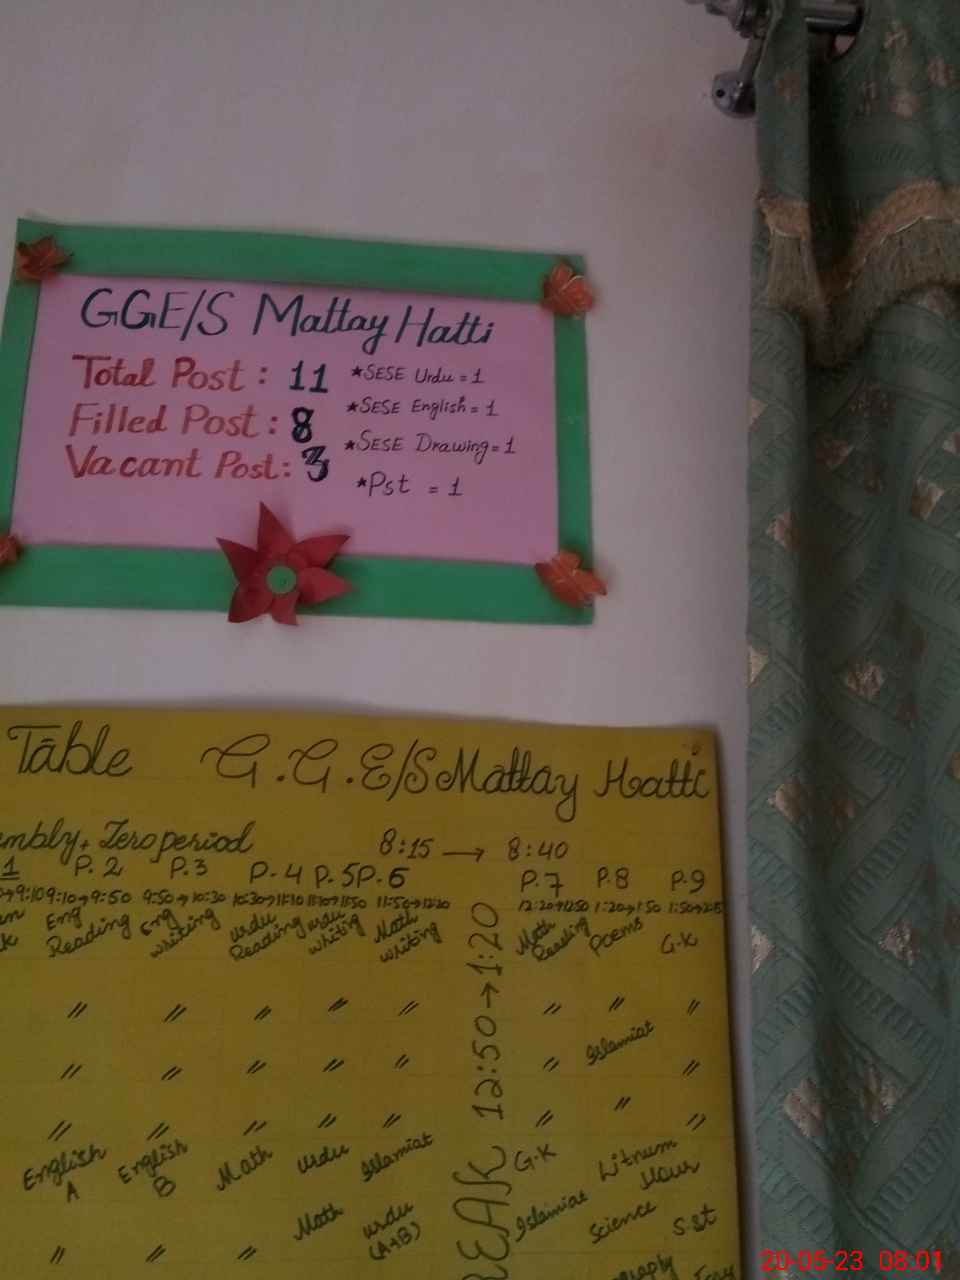 GGE/S Mattay Hatti
Total Post : 11
Filled Post : 8
Vacant Post : 3
*SESE Urdu = 1
*SESE English = 1
*SESE Drawing = 1
*Pst = 1
Table G.G.E/S Mattay Hatti
mbly, Zero period 8:15 → 8:40
1 P.2 P.3 P-4 P.5 P.6 P.7 P.8 P.9
→9:10 9:10→9:50 9:50→10:30 10:30→11:10 11:10→11:50 11:50→12:20 12:20→12:50 1:20→1:50
Eng Reading Eng writing Urdu Reading urdu writig Math writing Math Reading Poems G-K
BREAK 12:50→1:20
" " " " " " " "
" " " " " " Islamiat "
" " " " " " " "
English A English B Math Urdu Islamiat G-K
" " " Math urdu (A+B) Islamiat Science S-st
20-05-23 08:01